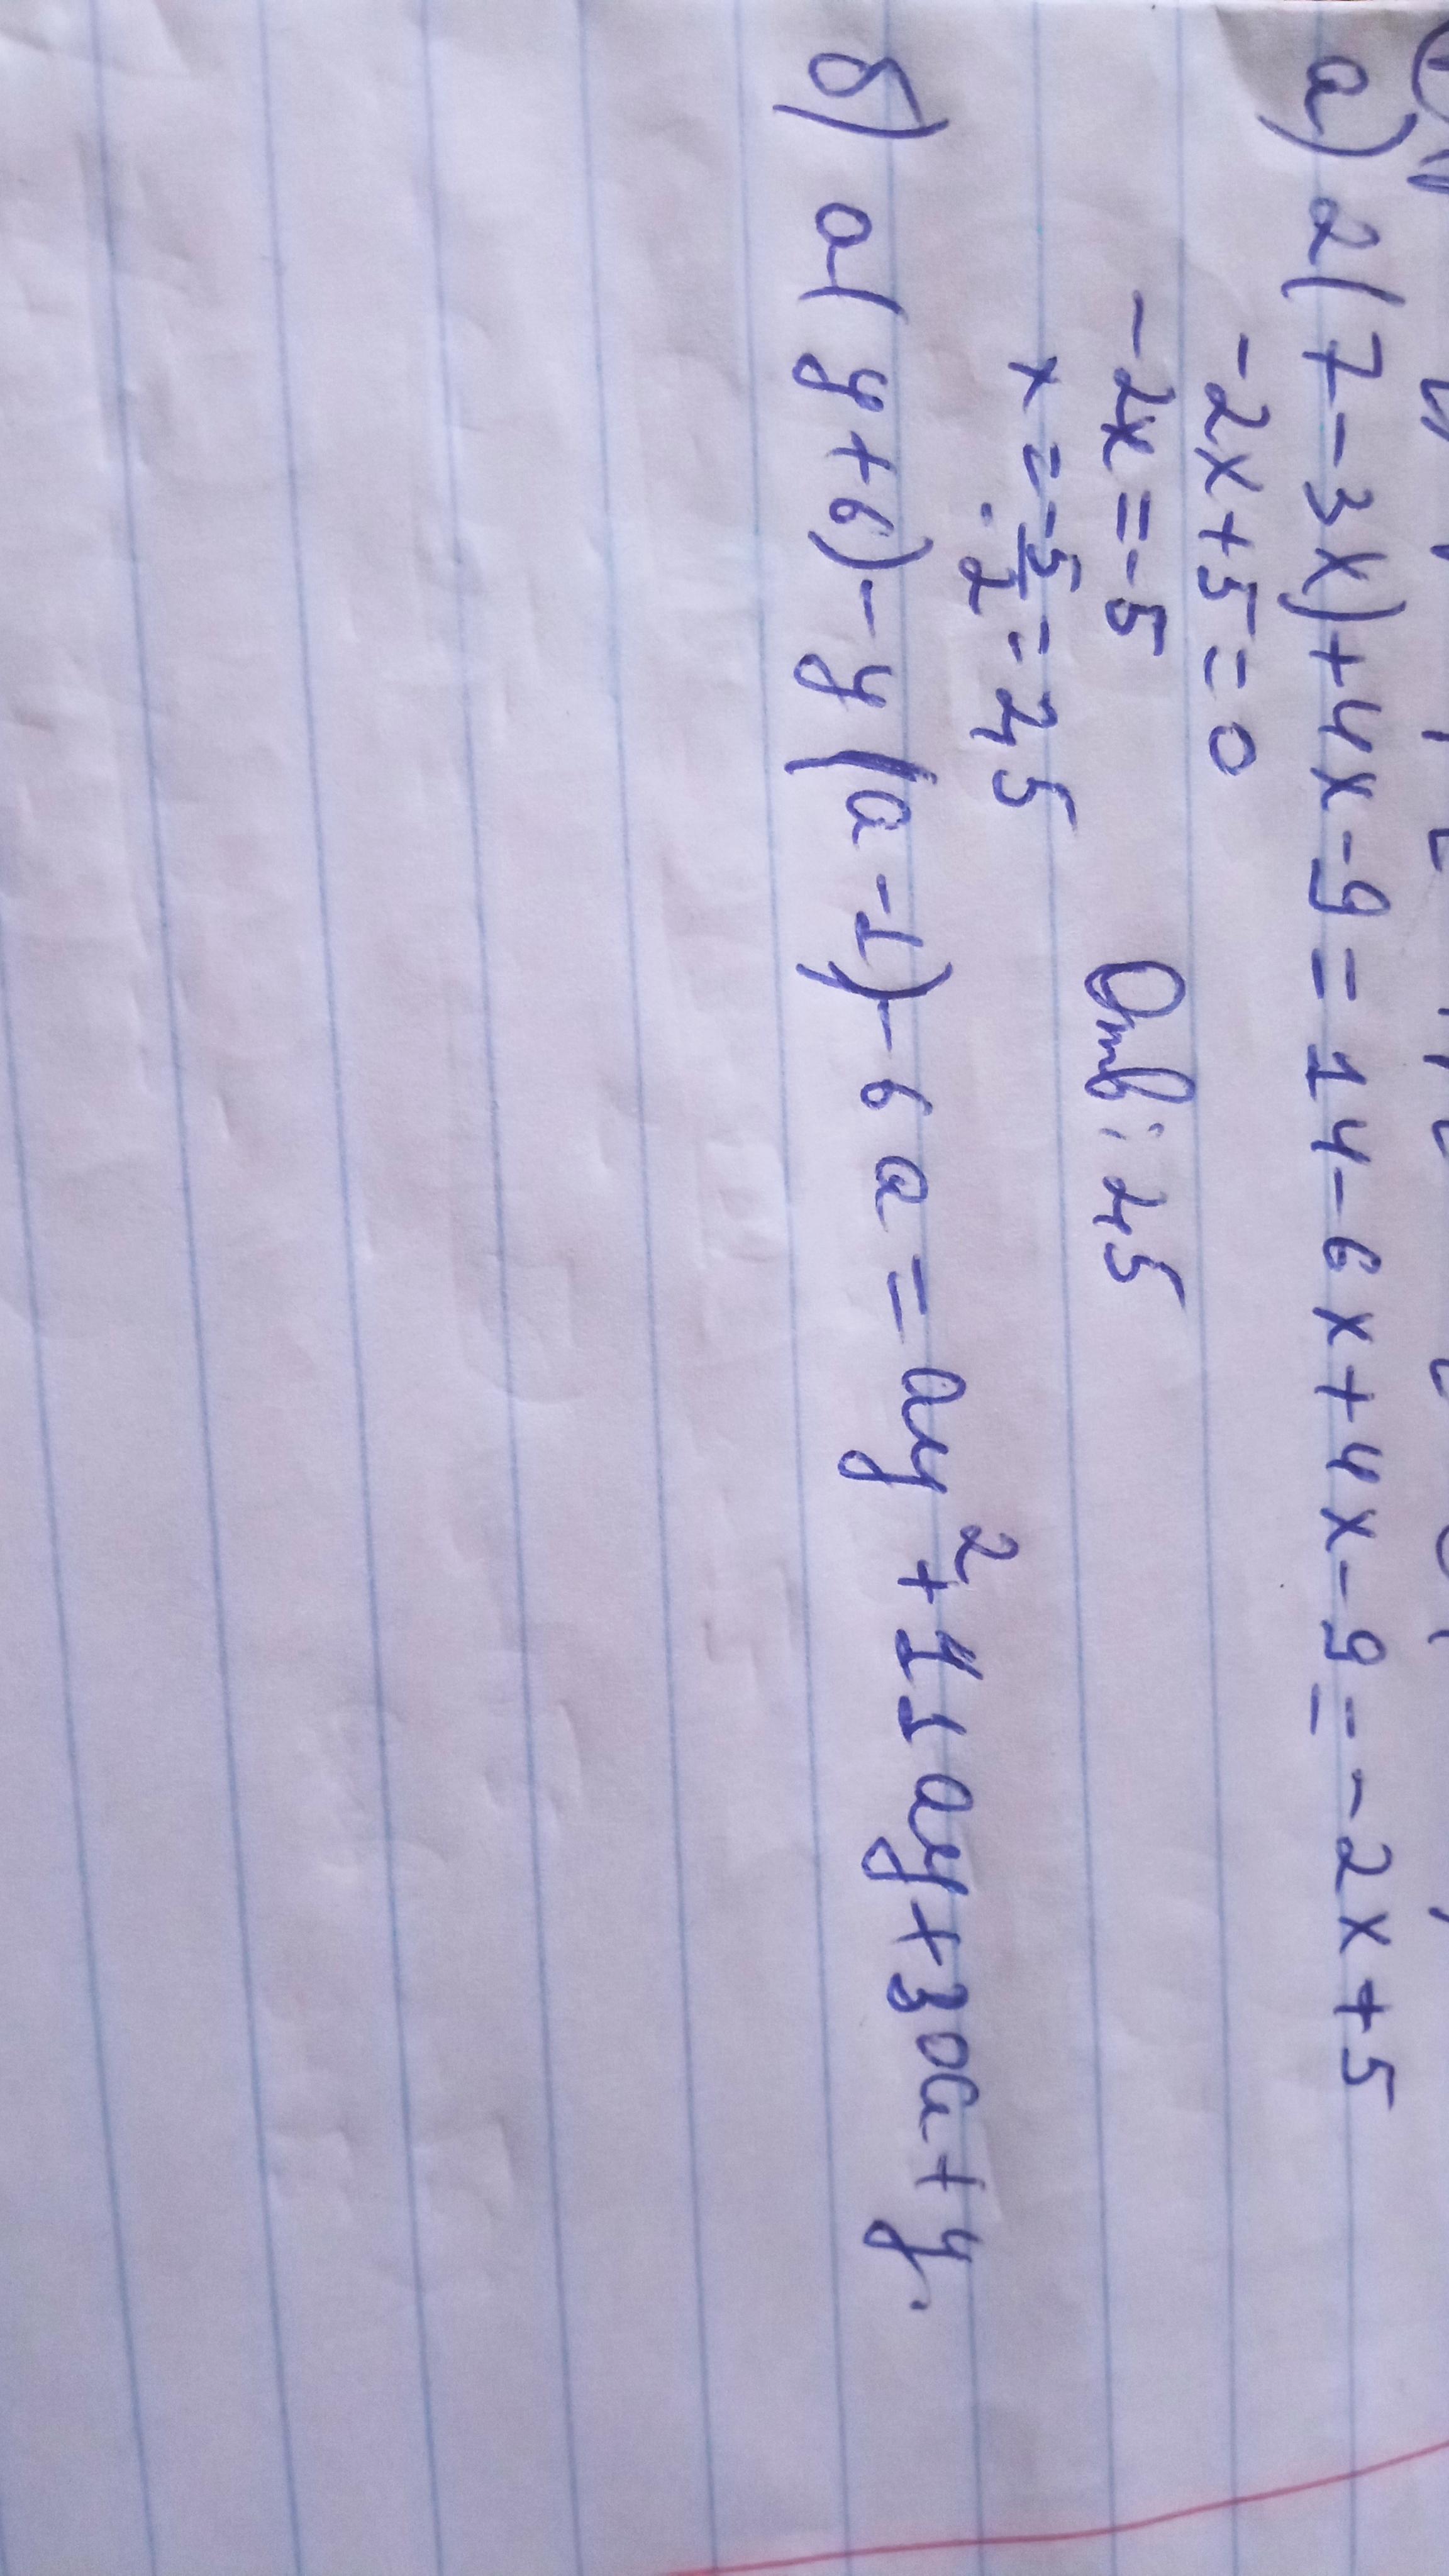 а) 2(7-3x)+4x-9=14-6x+4x-9=-2x+5
-2x+5=0
-2x=-5
Отв: 2,5
x=-5/-2=2,5
б) a(y+6)-y(a-1)-6a=ay²+11ay+30a+y.